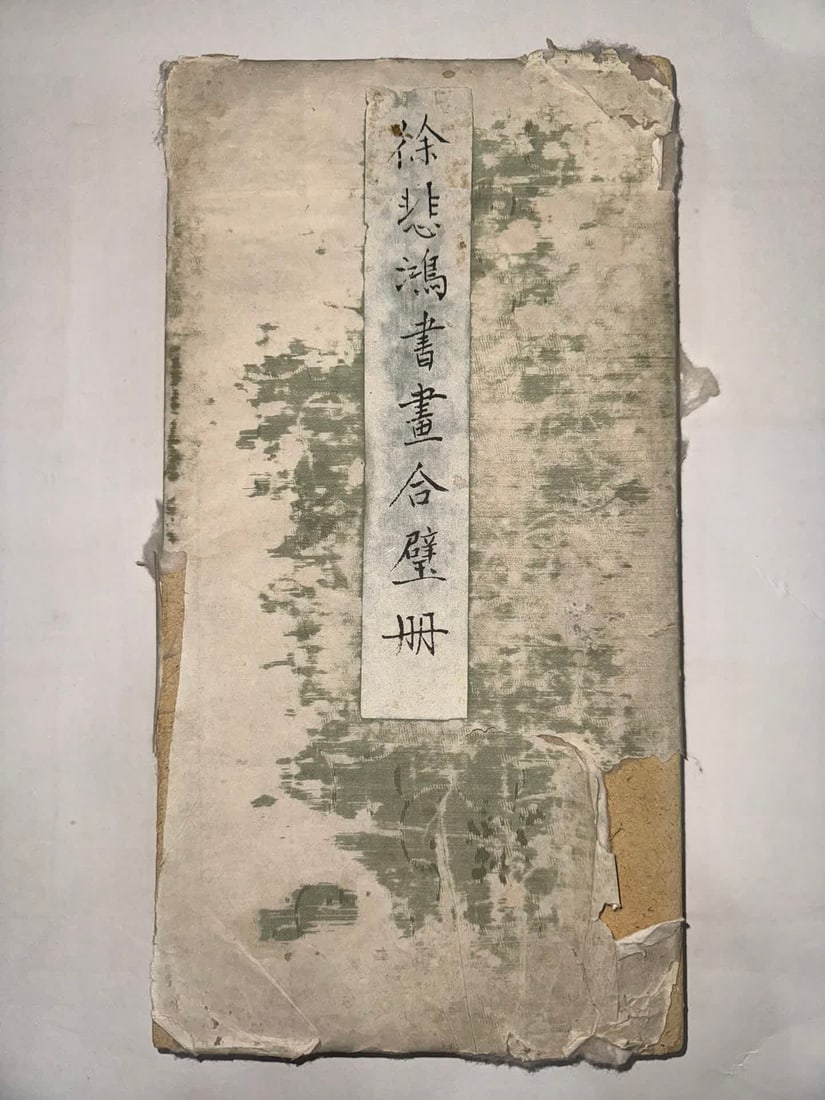 徐悲鴻書畫合璧册